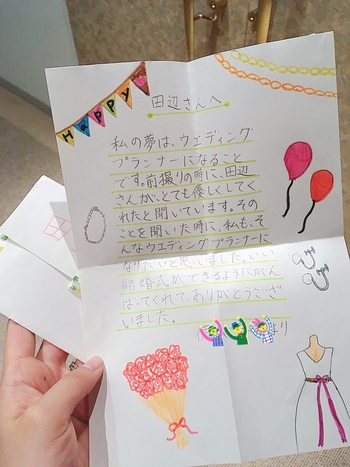 HAPPY
田辺さんへ
私の夢は、ウエディング
プランナーになること
です。前撮りの時に、田辺
さんが、とても優しくしてく
れたと聞いています。その
ことを聞いた時に、私も、そ
んなウエディングプランナーに
なりたいと思いました。いい
結婚式ができるようにがん
ばってくれて、ありがとうござ
いました。
より